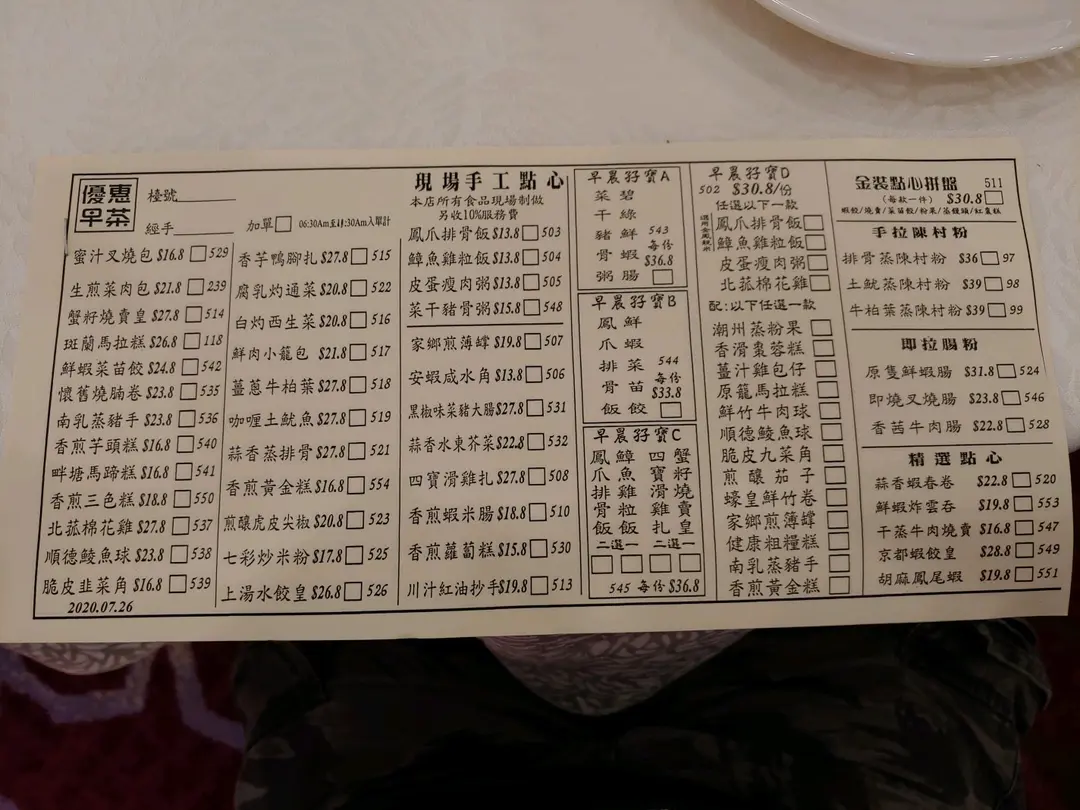 優惠
早茶
檯號
經手
加單
蜜汁叉燒包 $16.8 529
生煎菜肉包 $21.8 239
蟹籽燒賣皇 $27.8 514
斑蘭馬拉糕 $26.8 118
鮮蝦菜苗餃 $24.8 542
懷舊燒腩卷 $23.8 535
南乳蒸豬手 $23.8 536
香煎芋頭糕 $16.8 540
畔塘馬蹄糕 $16.8 541
香煎三色糕 $18.8 550
北菰棉花雞 $27.8 537
順德鯪魚球 $23.8 538
脆皮韭菜角 $16.8 539
2020.07.26
香芋鴨腳扎 $27.8 515
腐乳灼通菜 $20.8 522
白灼西生菜 $20.8 516
鮮肉小籠包 $21.8 517
薑蔥牛柏葉 $27.8 518
咖喱土魷魚 $27.8 519
蒜香蒸排骨 $27.8 521
香煎黃金糕 $16.8 554
煎釀虎皮尖椒 $20.8 523
七彩炒米粉 $17.8 525
上湯水餃皇 $26.8 526
現場手工點心
本店所有食品現場制做
另收10%服務費
鳳爪排骨飯 $13.8 503
鱆魚雞粒飯 $13.8 504
皮蛋瘦肉粥 $13.8 505
菜干豬骨粥 $15.8 548
家鄉煎薄罉 $19.8 507
安蝦咸水角 $13.8 506
黑椒味菜豬大腸 $27.8 531
蒜香水東芥菜 $22.8 532
四寶滑雞扎 $27.8 508
香煎蝦米腸 $18.8 510
香煎蘿蔔糕 $15.8 530
川汁紅油抄手 $19.8 513
早晨孖寶A
菜干豬骨粥
碧綠鮮蝦腸
543
每份
$36.8
早晨孖寶B
鳳爪排骨飯
鮮蝦菜苗餃
544
每份
$33.8
早晨孖寶C
鳳爪排骨飯
鱆魚雞粒飯
四寶滑雞扎
蟹籽燒賣皇
二選一 二選一
545 每份 $36.8
早晨孖寶D
502 $30.8/份
任選以下一款
鳳爪排骨飯
鱆魚雞粒飯
皮蛋瘦肉粥
北菰棉花雞
配:以下任選一款
潮州蒸粉果
香滑棗蓉糕
薑汁雞包仔
原籠馬拉糕
鮮竹牛肉球
順德鯪魚球
脆皮九菜角
煎釀茄子
蠔皇鮮竹卷
家鄉煎薄罉
健康粗糧糕
南乳蒸豬手
香煎黃金糕
金裝點心拼盤 511
(每款一件) $30.8
蝦餃/燒賣/菜苗餃/粉果/蒸饅頭/紅棗糕
手拉陳村粉
排骨蒸陳村粉 $36 97
土魷蒸陳村粉 $39 98
牛柏葉蒸陳村粉 $39 99
即拉腸粉
原隻鮮蝦腸 $31.8 524
即燒叉燒腸 $23.8 546
香茜牛肉腸 $22.8 528
精選點心
蒜香蝦春卷 $22.8 520
鮮蝦炸雲吞 $19.8 553
干蒸牛肉燒賣 $16.8 547
京都蝦餃皇 $28.8 549
胡麻鳳尾蝦 $19.8 551